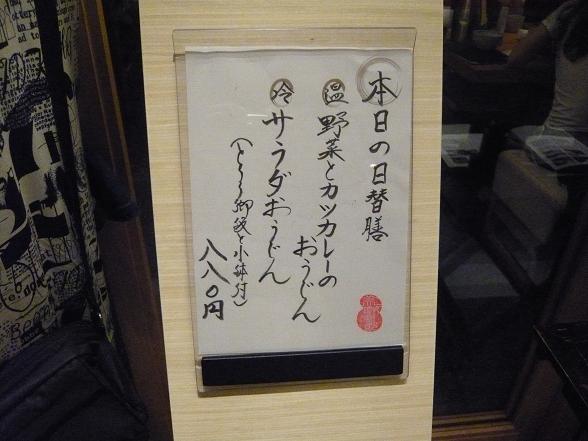 本日の日替膳
温 野菜とカツカレーの
おうどん
冷 サラダおうどん
(とろろ御飯と小鉢付)
八八〇円